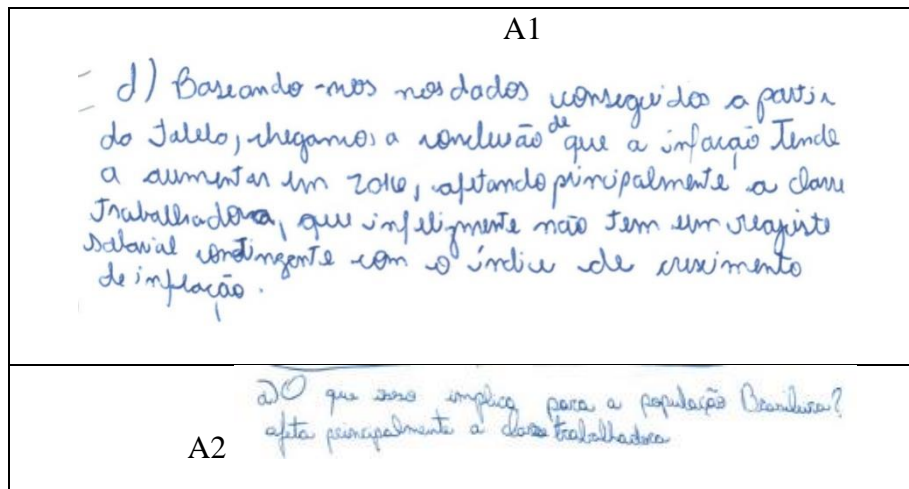 A1
d) Baseando-nos nos dados conseguidos a partir
da tabela, chegamos a conclusão de que a infação tende
a aumentar em 2016, afetando principalmente a classe
trabalhadora, que infelizmente não tem um reajuste
salarial condingente com o índice de crescimento
de inflação.
a) O que isso implica para a população Brasileira?
A2
afeta principalmente a classe trabalhadora